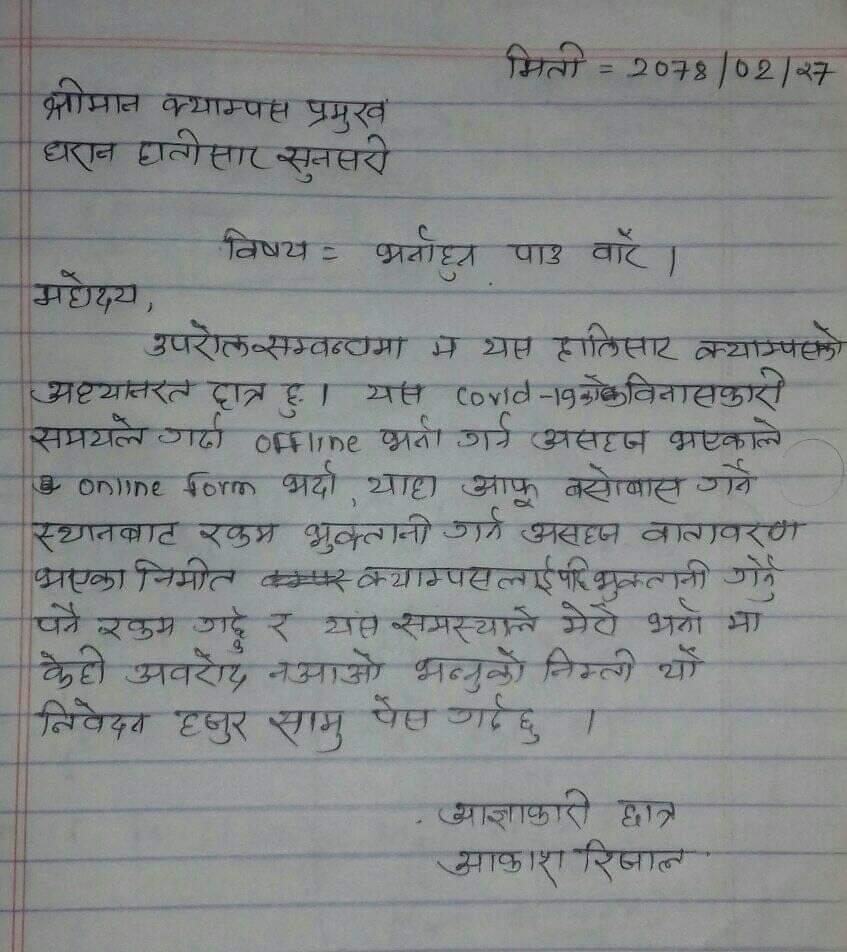 मिती = 2078/02/27
श्रीमान क्याम्पस प्रमुख
धरान हातीसार सुनसरी
विषय = भर्नाहुन पाउ वारे ।
महोदय,
उपरोक्त सम्वन्धमा म यस हात्तिसार क्याम्पसको
अध्यानरत छात्र हु । यस Covid-19को विनासकारी
समयले गर्दा offline भर्ना गर्न असहज भएकाले
online form भर्दा, याहा आफू बसोबास गर्ने
स्थानबाट रकम भुक्तानी गर्न असहज वातावरण
भएका निमीत क्याम्पसलाई पछि भुक्तानी गर्नु
पर्ने रकम गर्छु र यस समस्याले मेरो भर्ना मा
केही अवरोद नआओ भन्नुको निम्ती यो
निवेदन हजुर सामु पेस गर्दछु ।
आज्ञाकारी छात्र
आकाश रिजाल